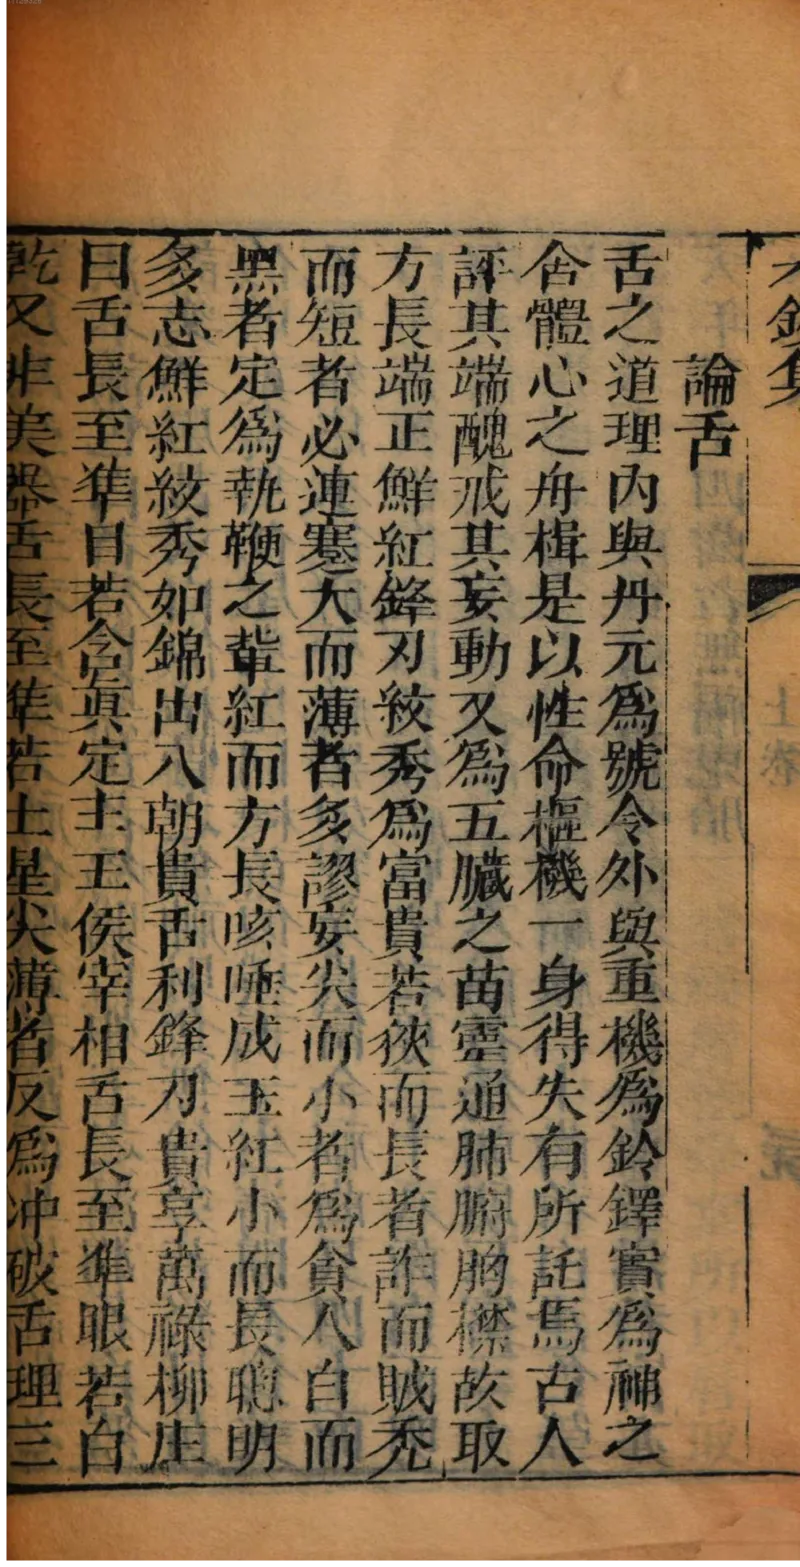 論舌
舌之道理內與丹元爲號令外與重機爲鈴鐸實爲神之
舍體心之舟楫是以性命樞機一身得失有所託焉古人
評其端醜戒其妄動又爲五臟之苗靈通肺腑胸襟故取
方長端正鮮紅鋒刃紋秀爲富貴若狹而長者詐而賊禿
而短者必連蹇大而薄者多謬妄尖而小者爲貪人白而
黑者定爲執鞭之輩紅而方長咳唾成玉紅小而長聰明
多志鮮紅紋秀如錦出入朝貴舌利鋒刀貴享萬祿柳庄
曰舌長至準目若含眞定主王侯宰相舌長至準眼若白
乾又非美器舌長至準若土星尖薄者反爲冲破舌理三